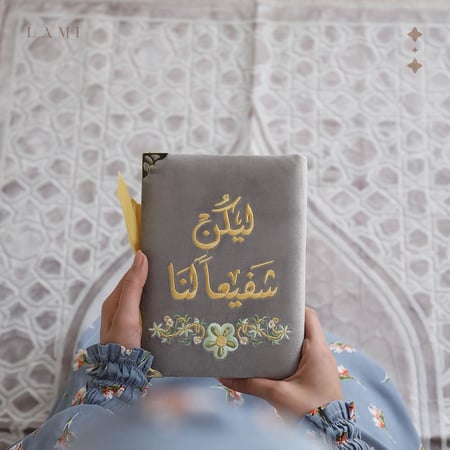 LAMI
ليكُن
شفيعاً لنَا